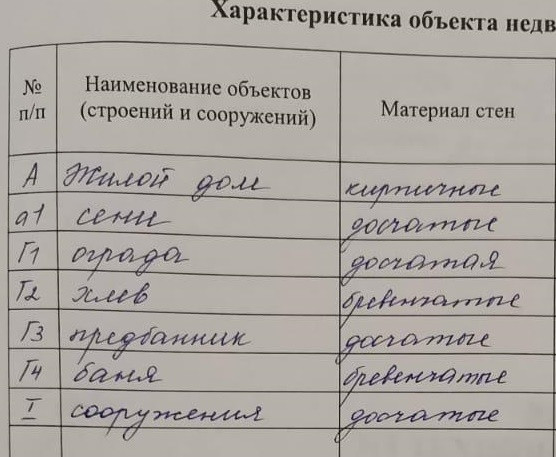 Характеристика объекта недв
№ п/п Наименование объектов (строений и сооружений) Материал стен
А Жилой дом кирпичные
а1 сени досчатые
Г1 ограда досчатая
Г2 хлев бревенчатые
Г3 предбанник досчатые
Г4 баня бревенчатые
I сооружения досчатые